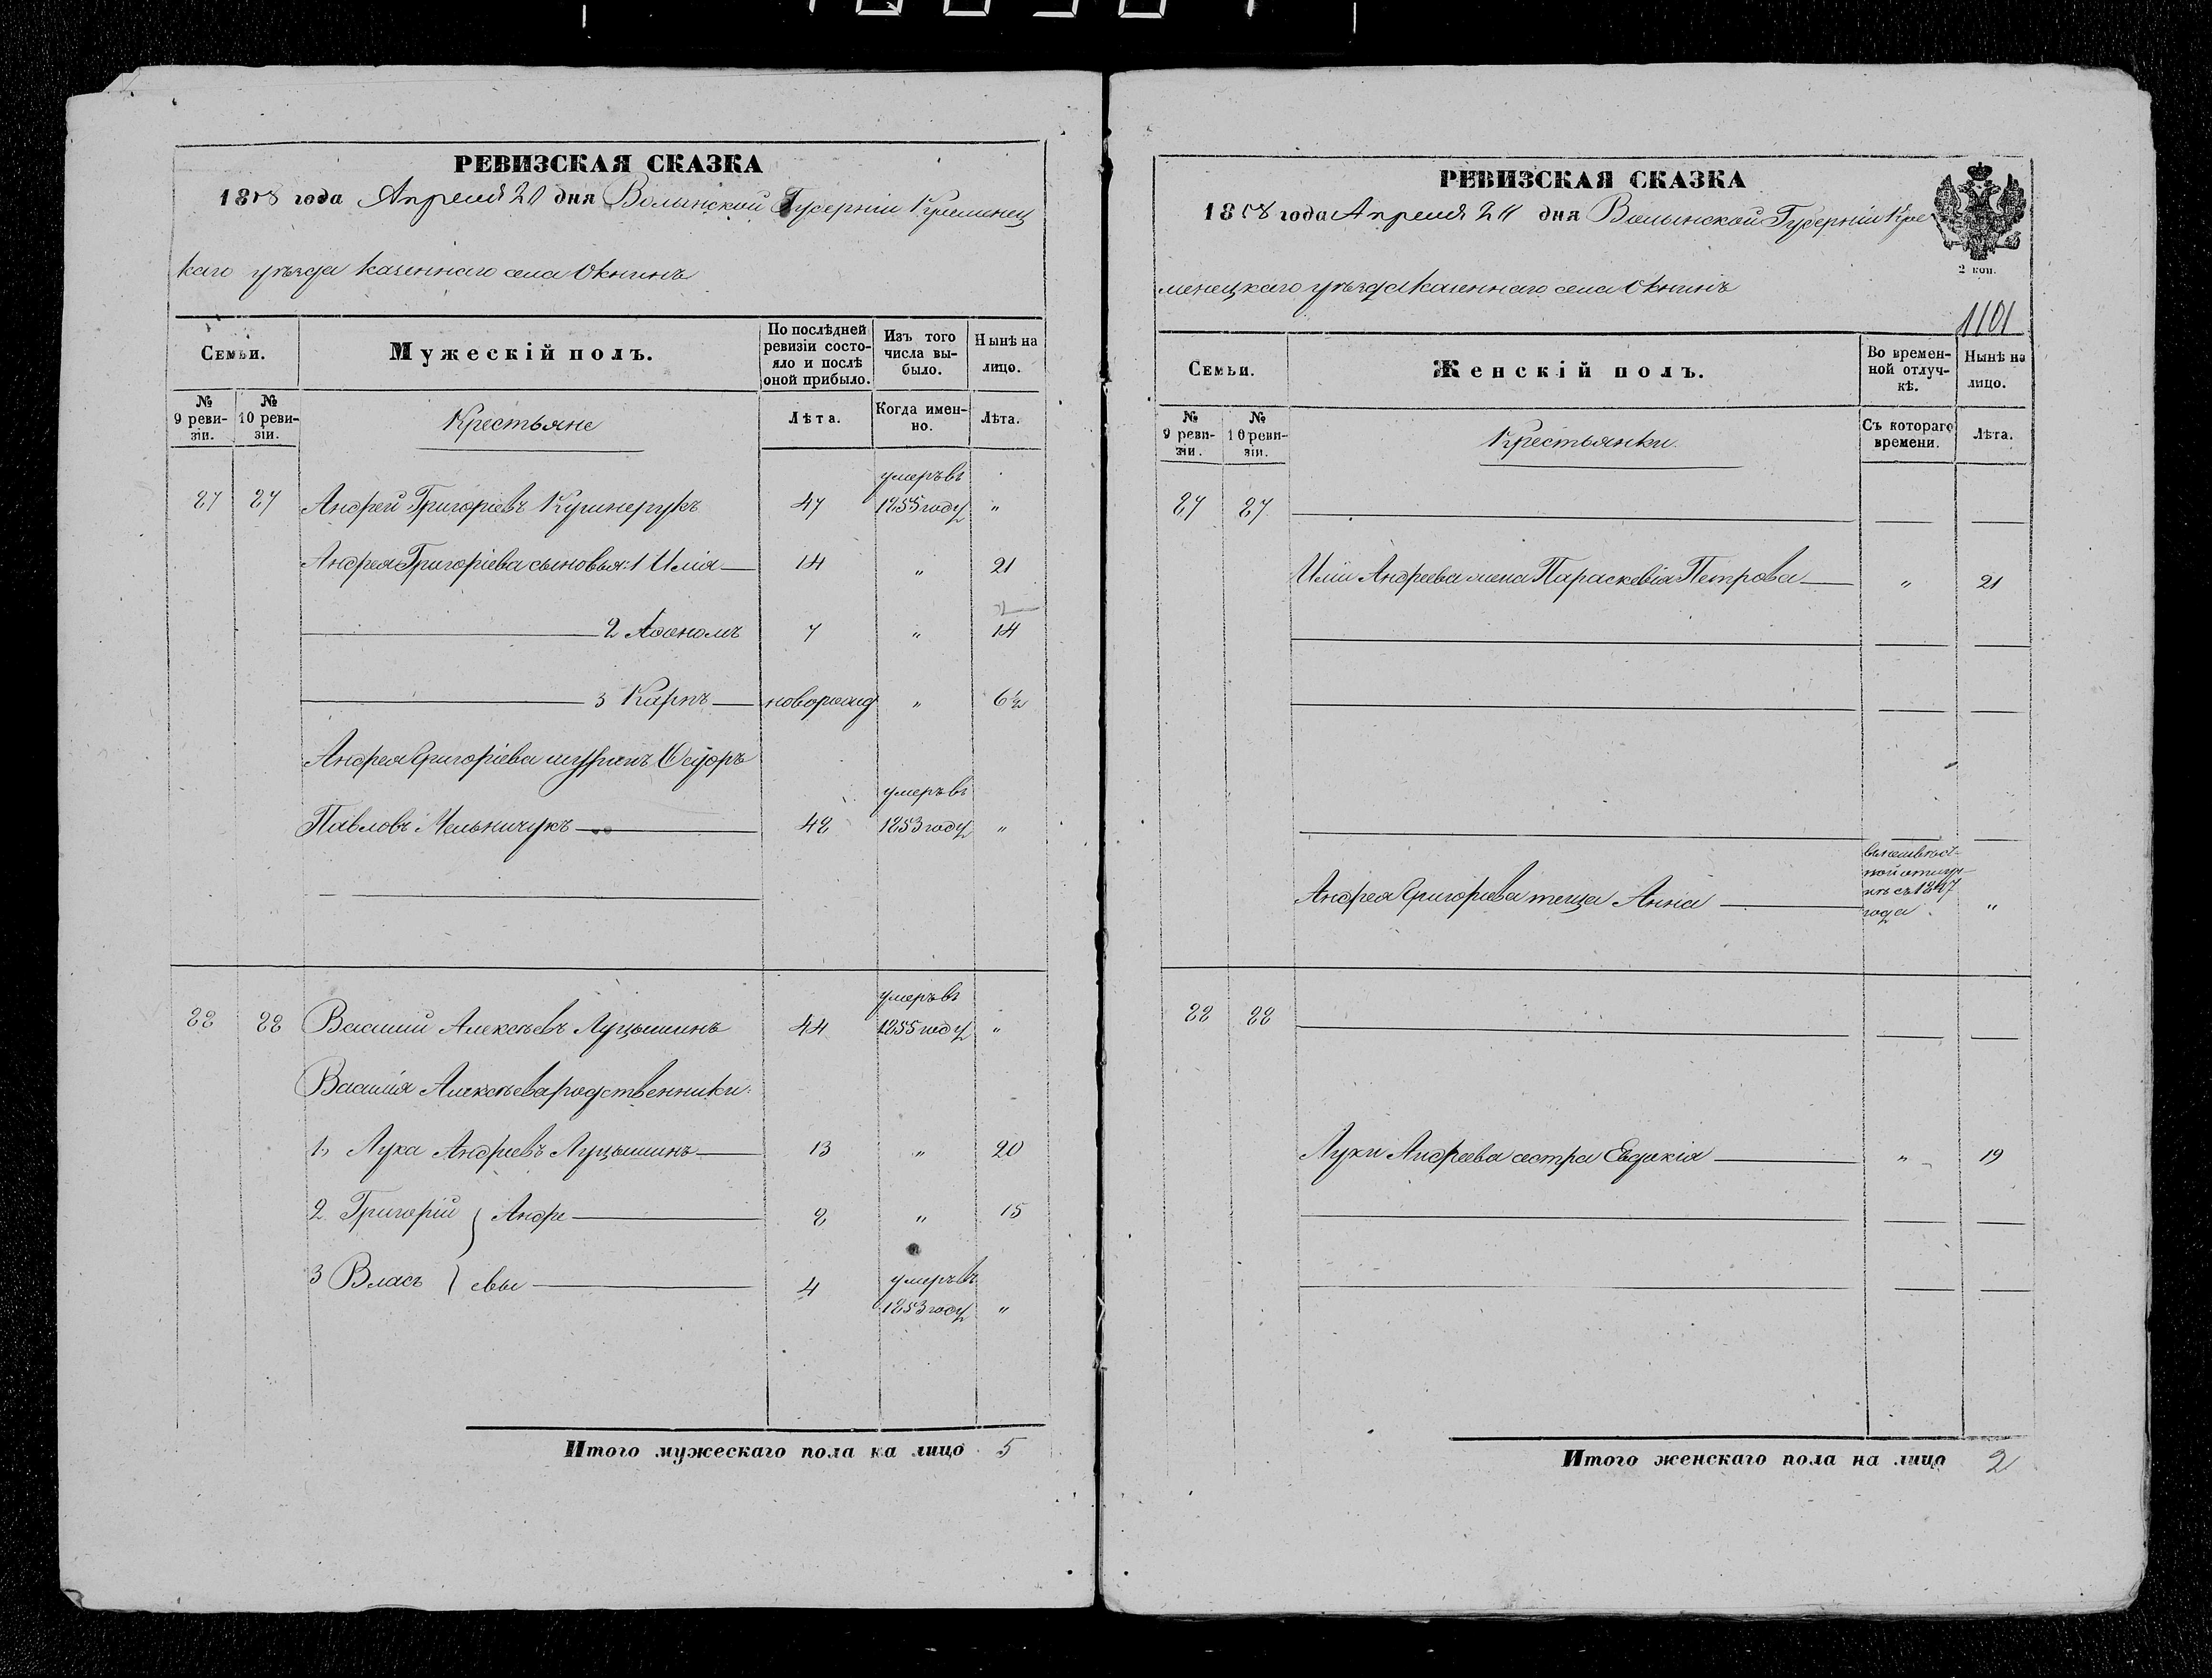 РЕВИЗСКАЯ СКАЗКА
1858 года Апреля 20 дня Волынской Губерніи Кременец
каго уѣзда казеннаго села Окнинъ
Семьи.
Мужескій полъ.
По послѣдней ревизіи состояло и послѣ оной прибыло.
Изъ того числа выбыло.
Нынѣ на лицо.
№ 9 ревизіи.
№ 10 ревизіи.
Крестьяне
Лѣта.
Когда именно.
Лѣта.
умеръ въ
27 27 Андрей Григоріевъ 47 1855 году "
Андрея Григоріева сыновья: 1 Илія 14 " 21
2 7 " 14
3 Карпъ новорожд " 6½
Андрея Григоріева шуринъ Ѳедоръ
умеръ въ
Павловъ Мельничукъ 48 1853 году "
умеръ въ
28 28 Василій Алексѣевъ Луцышинъ 44 1855 году "
Василія Алексѣева родственники:
1, Лука Андреевъ Луцышинъ 13 " 20
2 Григорій } Андре 8 " 15
3 Власъ } евы 4 умеръ въ
1853 году "
Итого мужескаго пола на лицо 5
РЕВИЗСКАЯ СКАЗКА
1858 года Апреля 20 дня Волынской Губерніи Кре
менецкаго уѣзда казеннаго села Окнинъ
2 коп.
1101
Семьи.
Женскій полъ.
Во временной отлучкѣ.
Нынѣ на лицо.
№ 9 ревизіи.
№ 10 ревизіи.
Крестьянки.
Съ котораго времени.
Лѣта.
27 27
Иліи Андреева жена Параскевія Петрова " 21
Андрея Григоріева теща Анна съ 1847
года "
28 28
Луки Андреева сестра Евдокія " 19
Итого женскаго пола на лицо 2